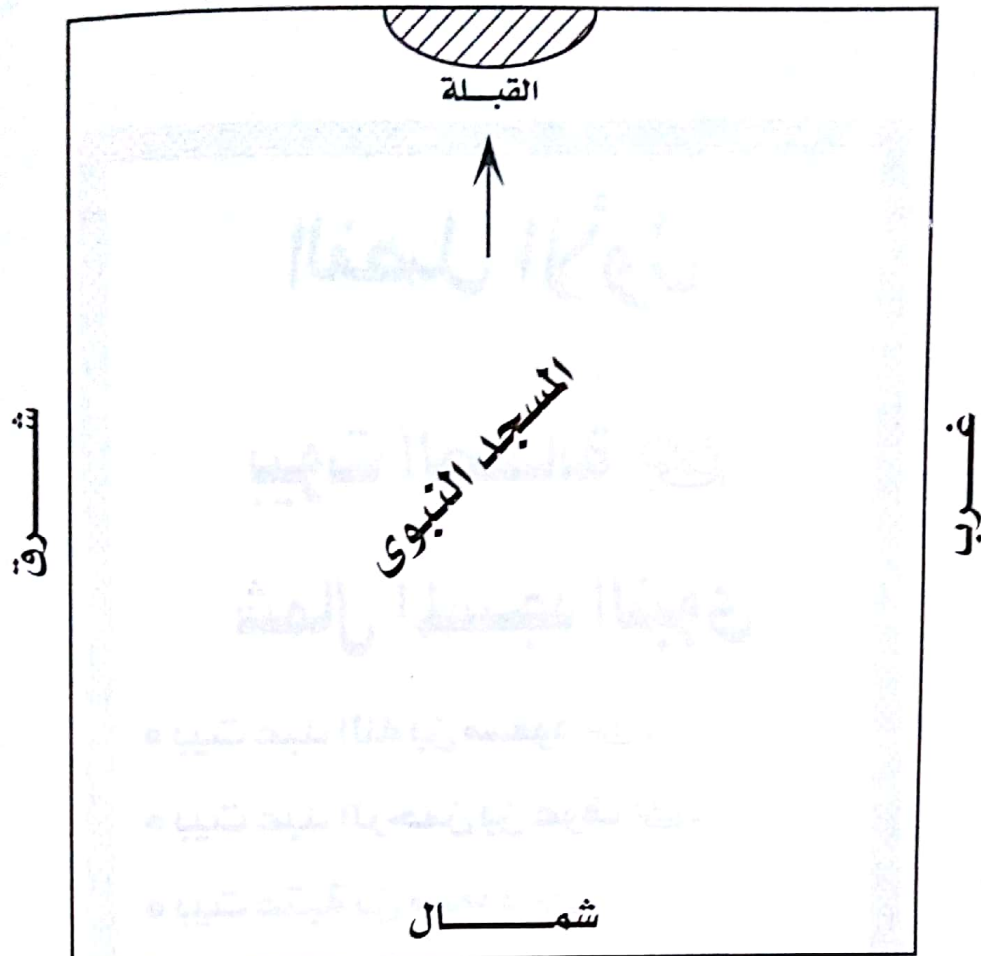 القبلة
المسجد النبوى
شرق
غرب
شمال